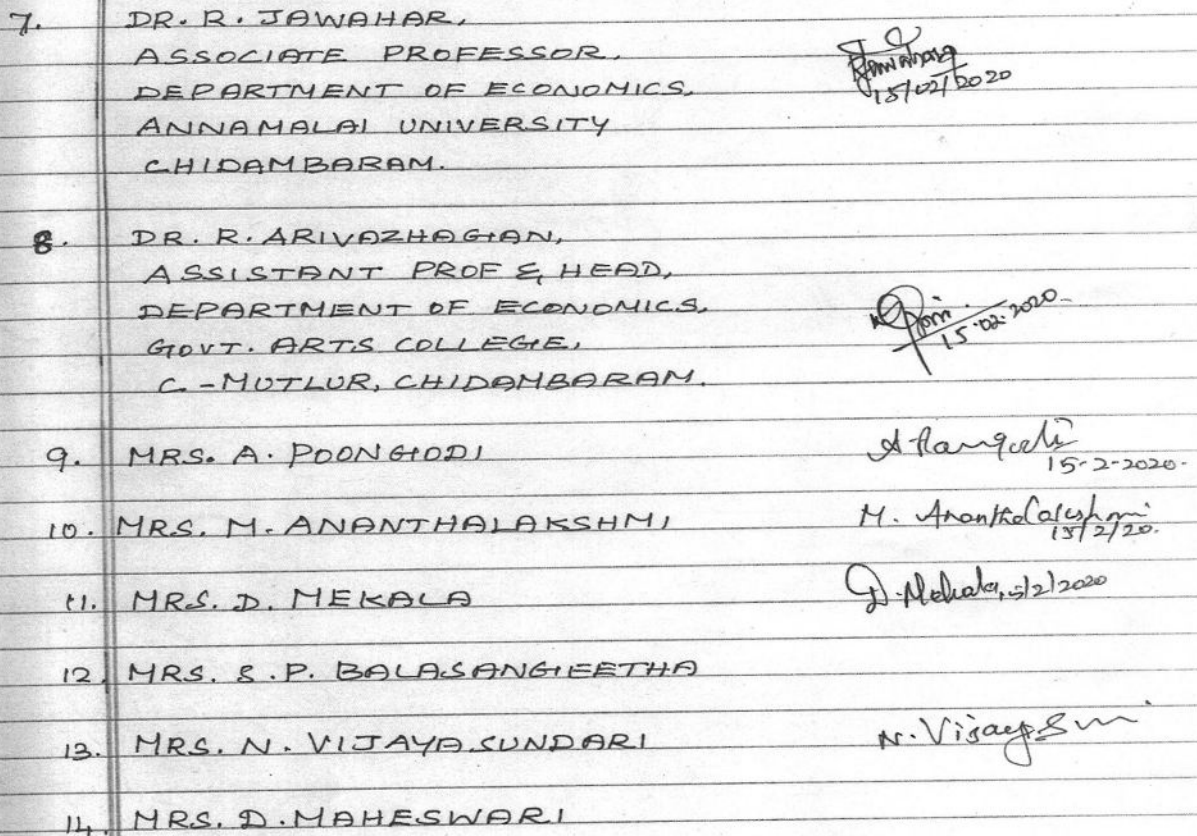 7. DR. R. JAWAHAR,
ASSOCIATE PROFESSOR,
DEPARTMENT OF ECONOMICS,
ANNAMALAI UNIVERSITY
CHIDAMBARAM.
15/02/2020
8. DR. R. ARIVAZHAGAN,
ASSISTANT PROF & HEAD,
DEPARTMENT OF ECONOMICS,
GOVT. ARTS COLLEGE,
C.-MUTLUR, CHIDAMBARAM.
15.02.2020
9. MRS. A. POONGODI
15-2-2020.
10. MRS. M. ANANTHALAKSHMI M. Ananthalakshmi
15/2/20.
11. MRS. D. MEKALA D. Mekala, 15/2/2020
12 MRS. S.P. BALASANGEETHA
13. MRS. N. VIJAYA SUNDARI
14. MRS. D. MAHESWARI